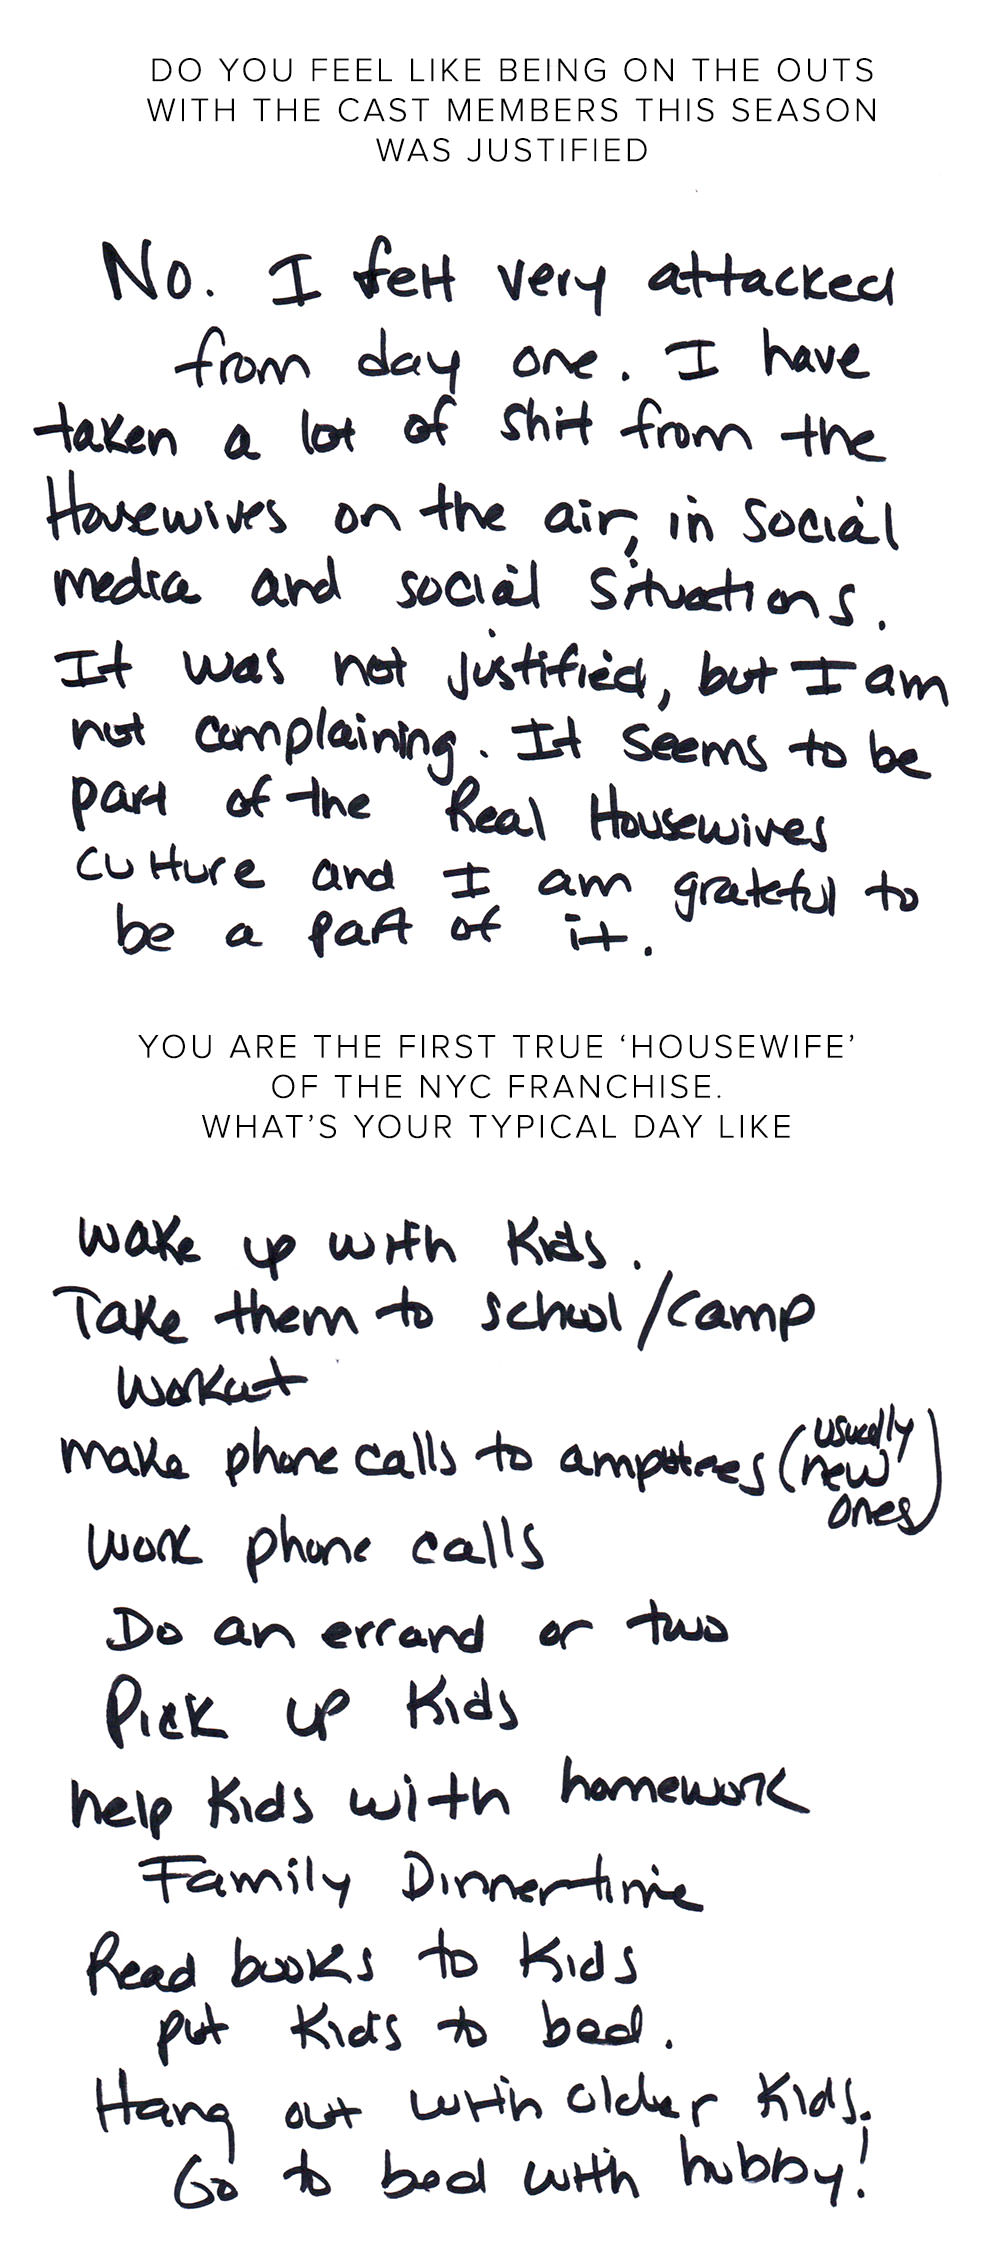 DO YOU FEEL LIKE BEING ON THE OUTS
WITH THE CAST MEMBERS THIS SEASON
WAS JUSTIFIED
No. I felt very attacked
from day one. I have
taken a lot of shit from the
Housewives on the air, in social
media and social situations.
It was not justified, but I am
not complaining. It seems to be
part of the Real Housewives
culture and I am grateful to
be a part of it.
YOU ARE THE FIRST TRUE ‘HOUSEWIFE’
OF THE NYC FRANCHISE.
WHAT’S YOUR TYPICAL DAY LIKE
wake up with kids.
Take them to school/camp
workout
make phone calls to amputees (usually new ones)
work phone calls
Do an errand or two
Pick up kids
help kids with homework
Family Dinnertime
Read books to kids
put kids to bed.
Hang out with older kids.
Go to bed with hubby!